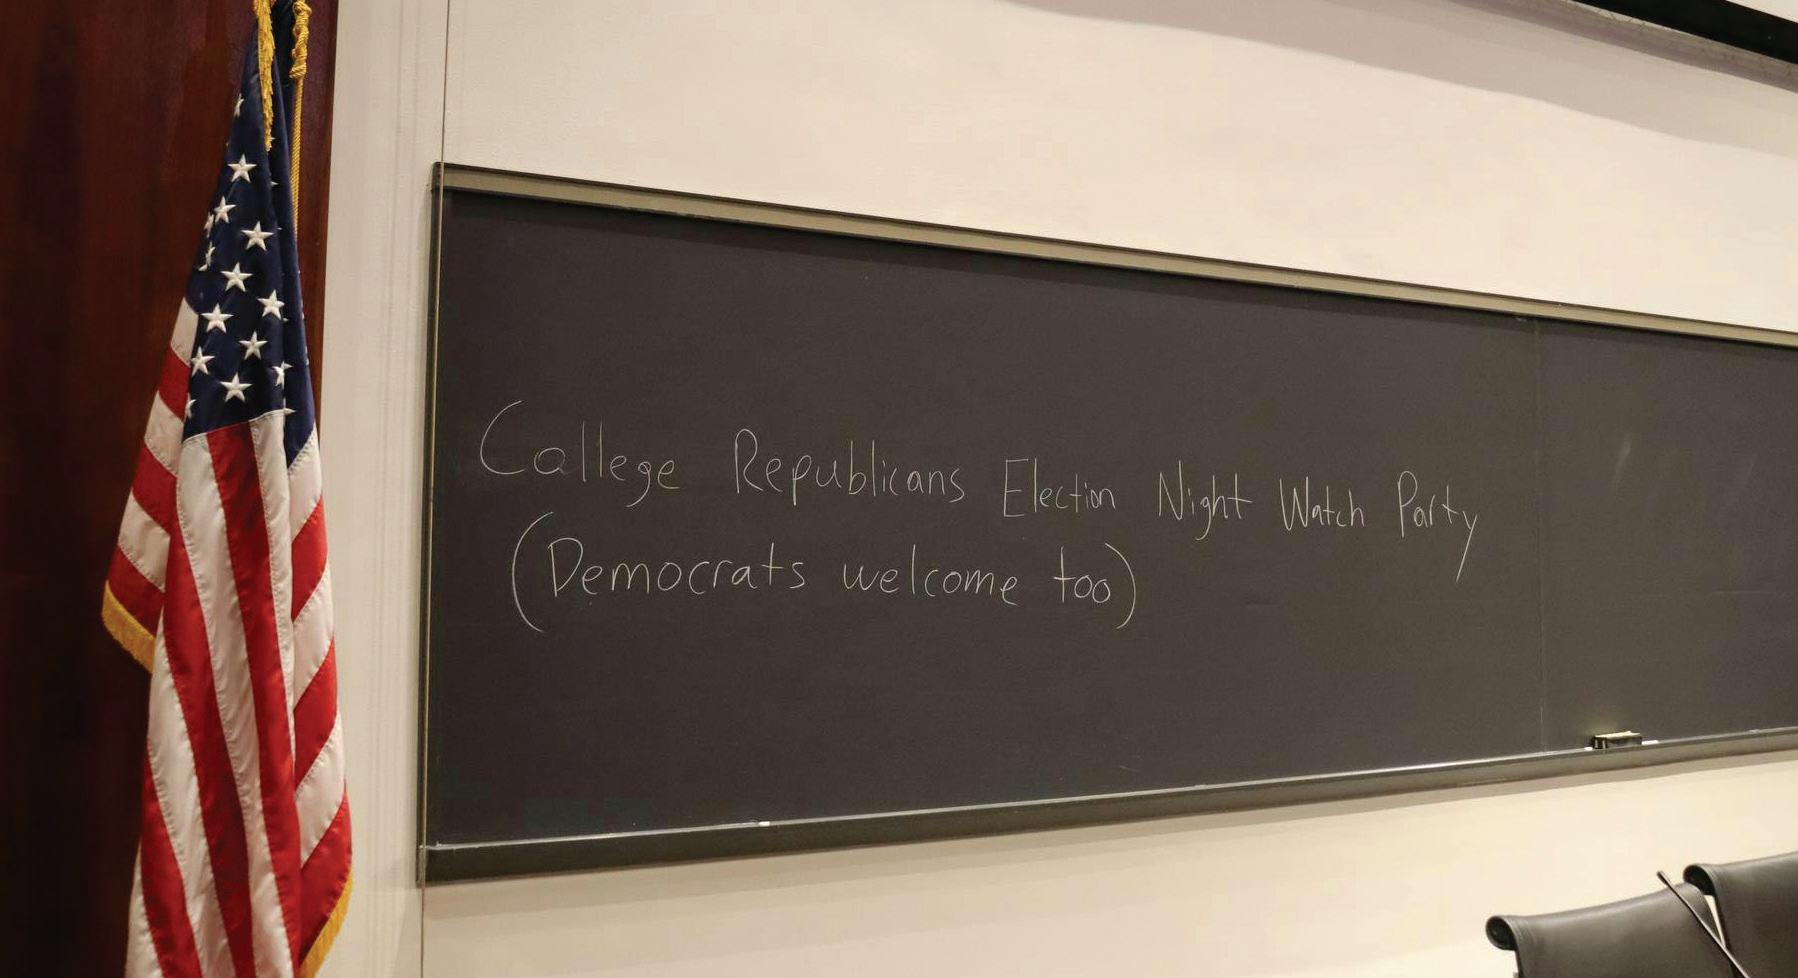 College Republicans Election Night Watch Party
(Democrats welcome too)